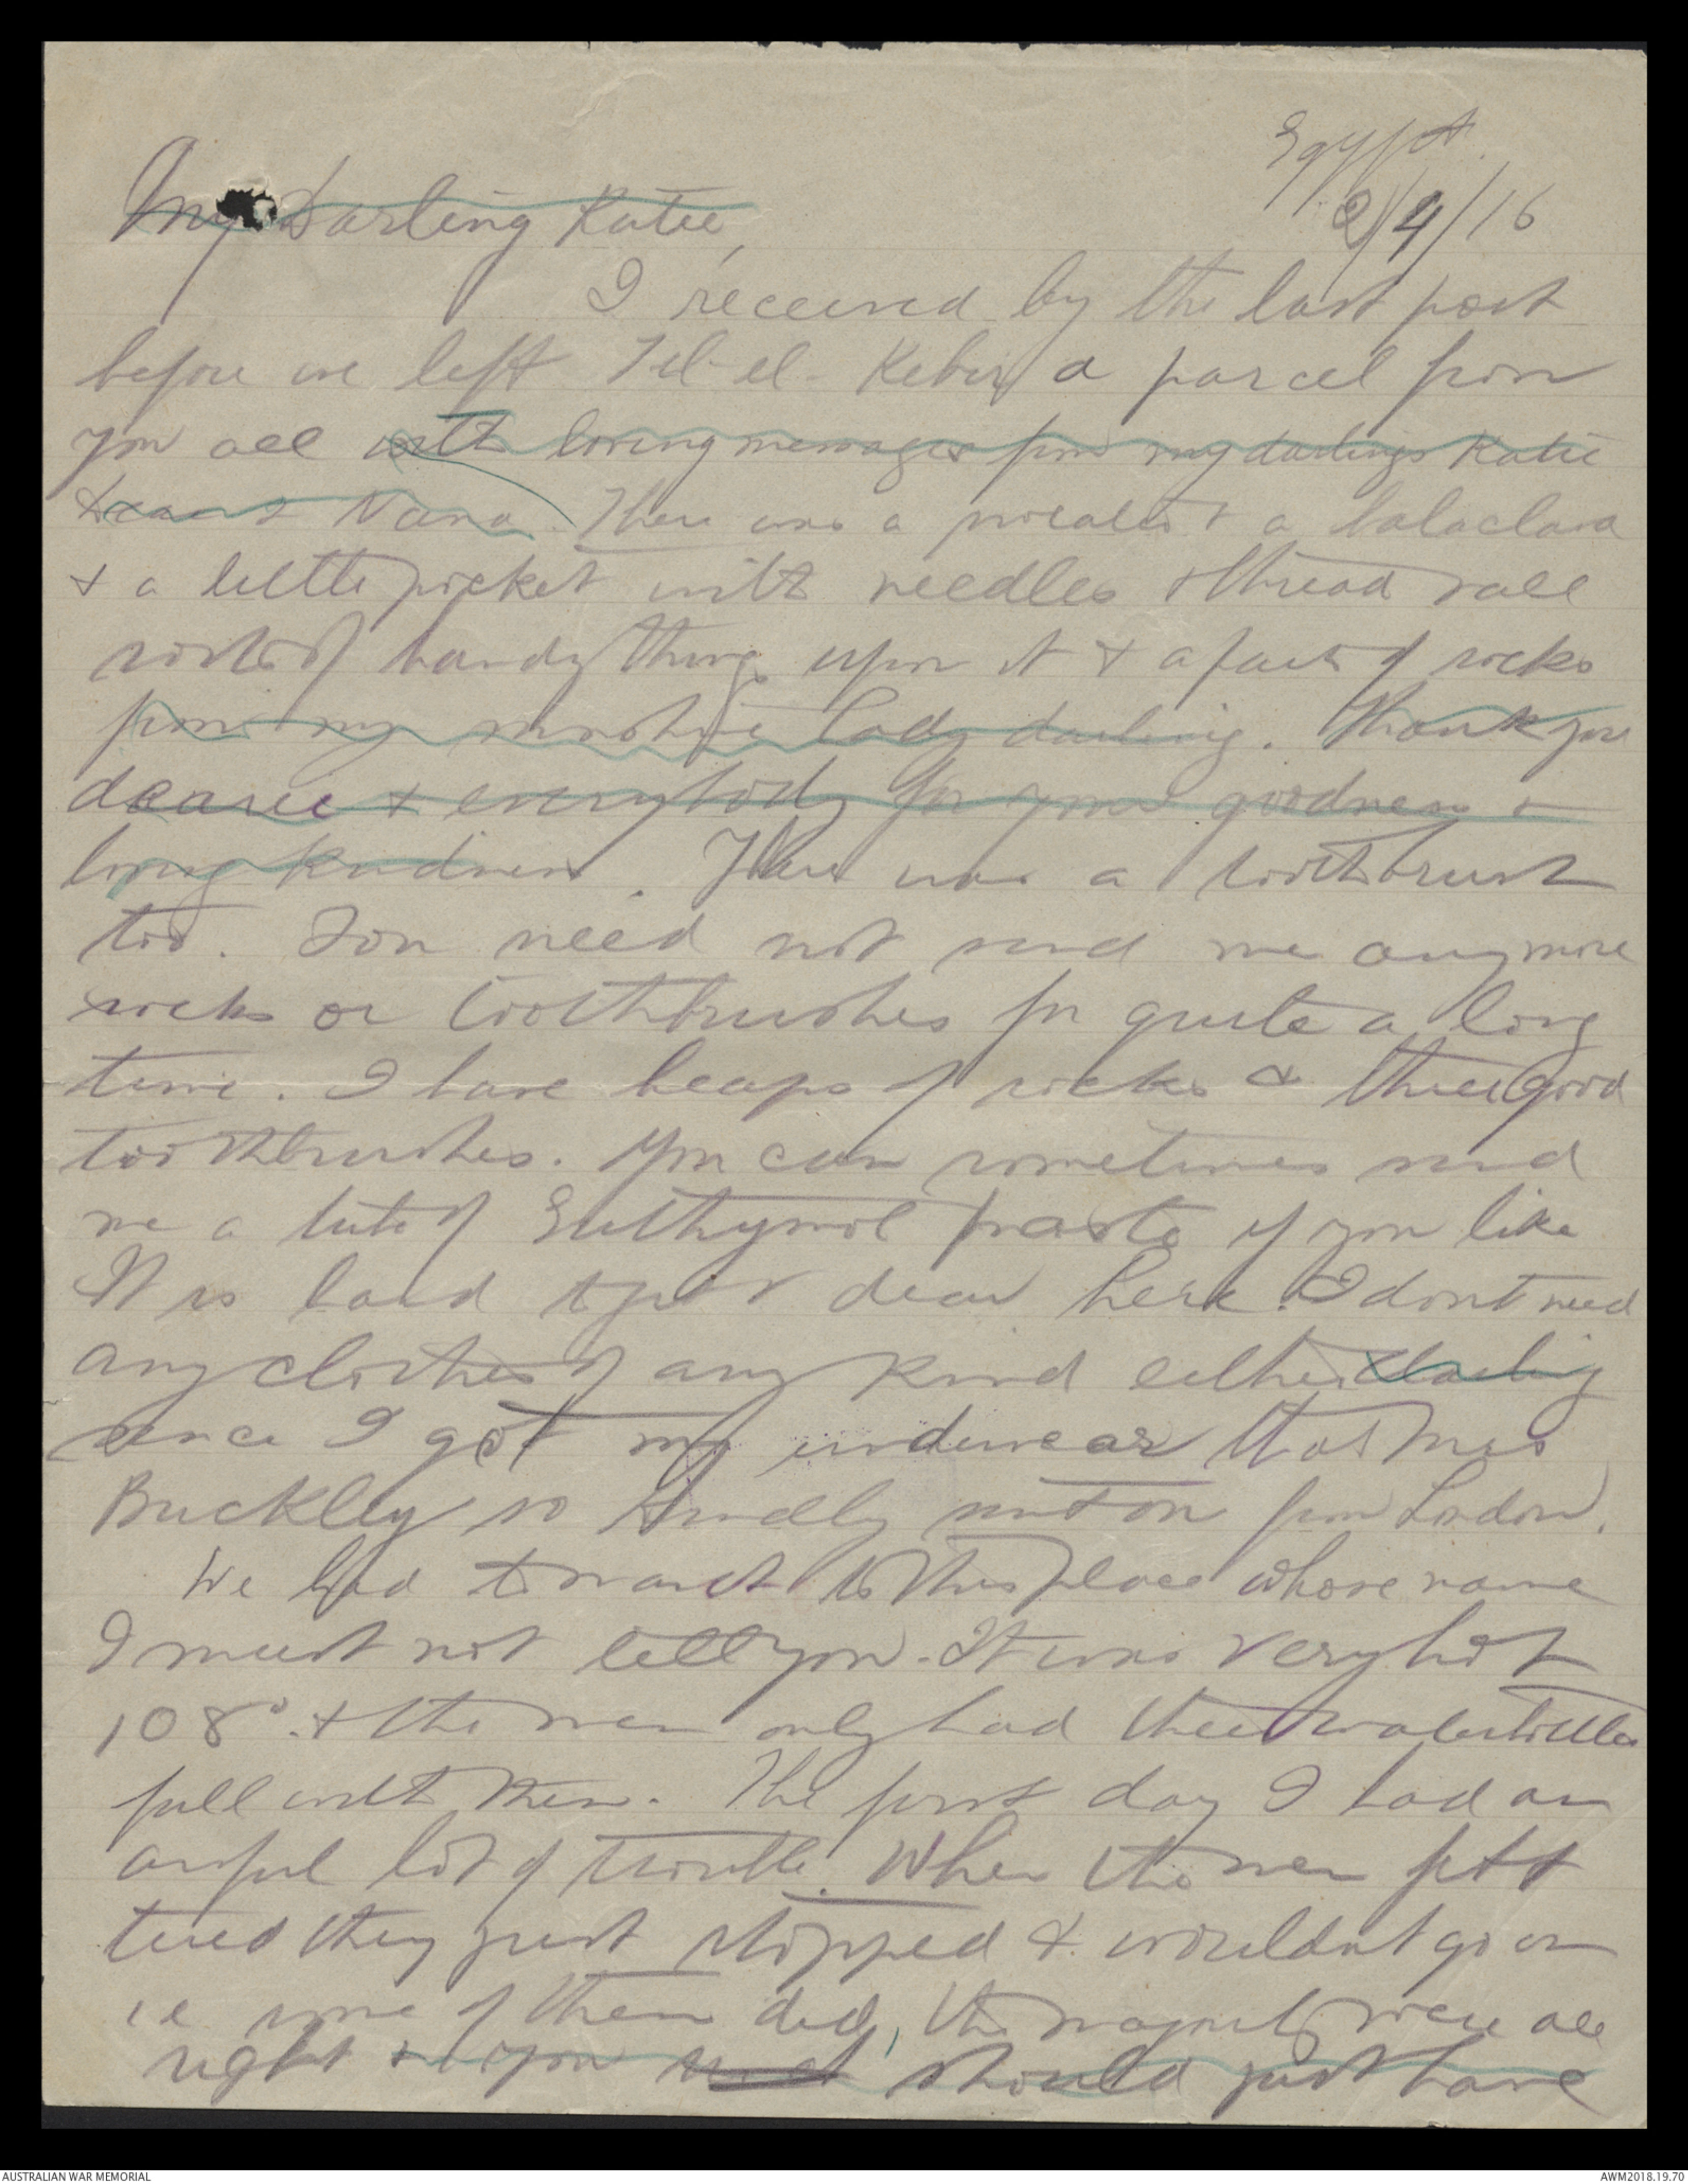 Egypt.
2/4/16
My Darling Katie,
I received by the last post
before we left Tel-el-Kebir a parcel from
you all with loving messages from my darlings Katie
& Nana. There was a & a balaclava
& a little picket with needles & thread & all
sorts of handy things upon it & a pair of socks
from my Lady darling. Thank you
dearie & everybody for your goodness &
loving kindness. There was a toothbrush
too. You need not send me any more
socks or toothbrushes for quite a long
time. I have heaps of socks & three good
toothbrushes. You can sometimes send
me a tube of Euthymol paste if you like
It is hard to get & dear here. I dont need
any clothes of any kind either darling
since I got my underwear that Mrs
Buckley so kindly sent on from London.
We had to march to this place whose name
I must not tell you. It was very hot
108° & the men only had their waterbottles
full with them. The first day I had an
awful lot of trouble. When the men felt
tired they just stopped & wouldnt go on
ie some of them did, the majority were all
right & if you should just have
AUSTRALIAN WAR MEMORIAL
AWM2018.19.70